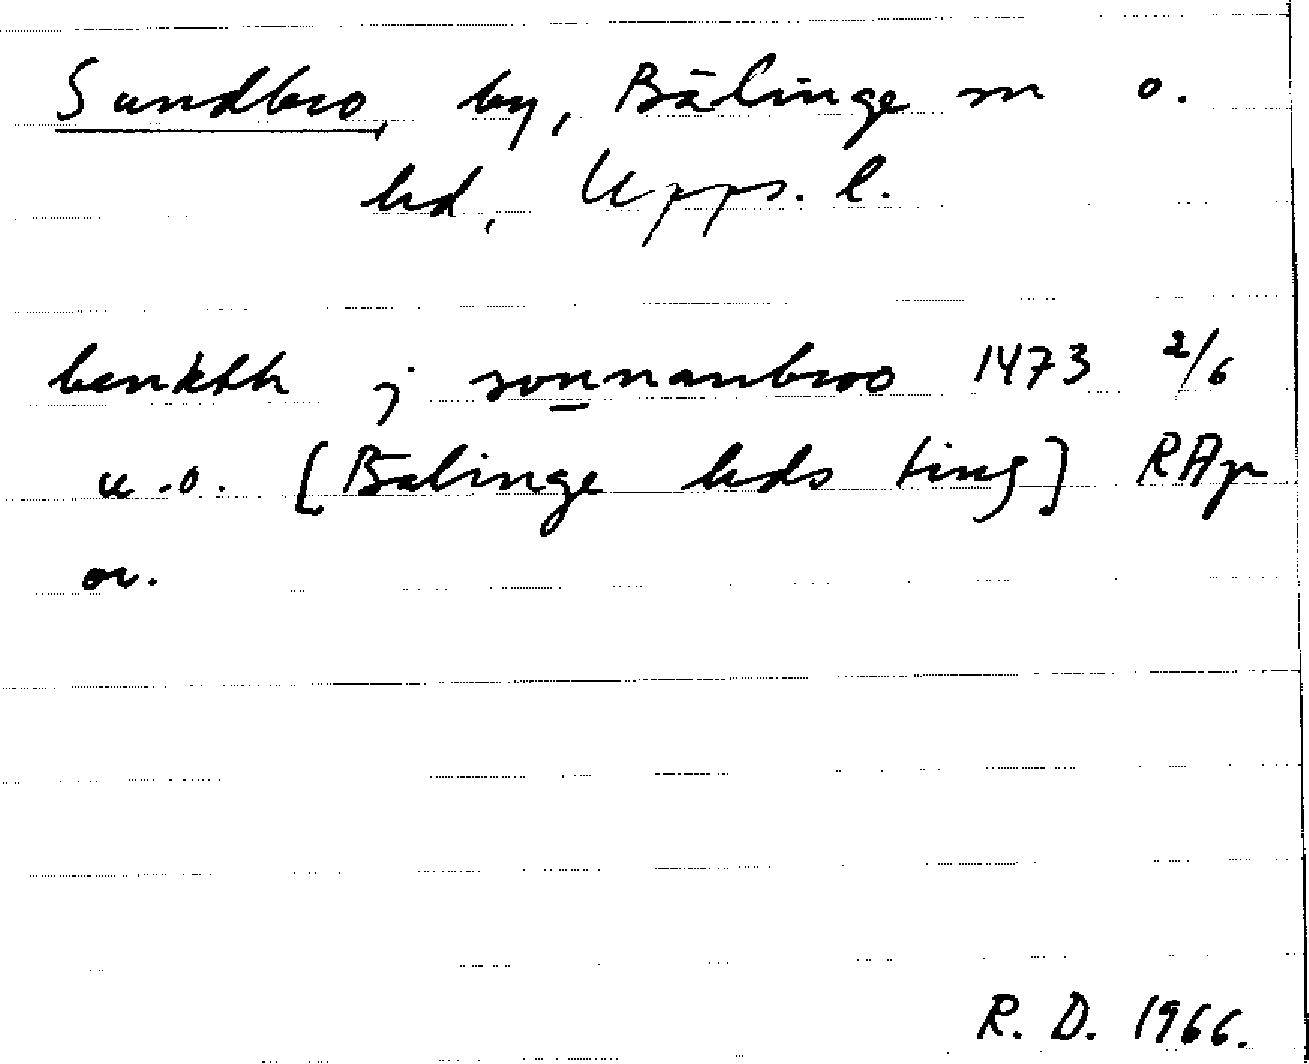 Sundbro, by, Bälinge sn o.
hd, Upps. l.
benkth j sonnanbroo 1473 2/6
u.o. [Bälinge hds ting] RAp
or.
R. D. 1966.